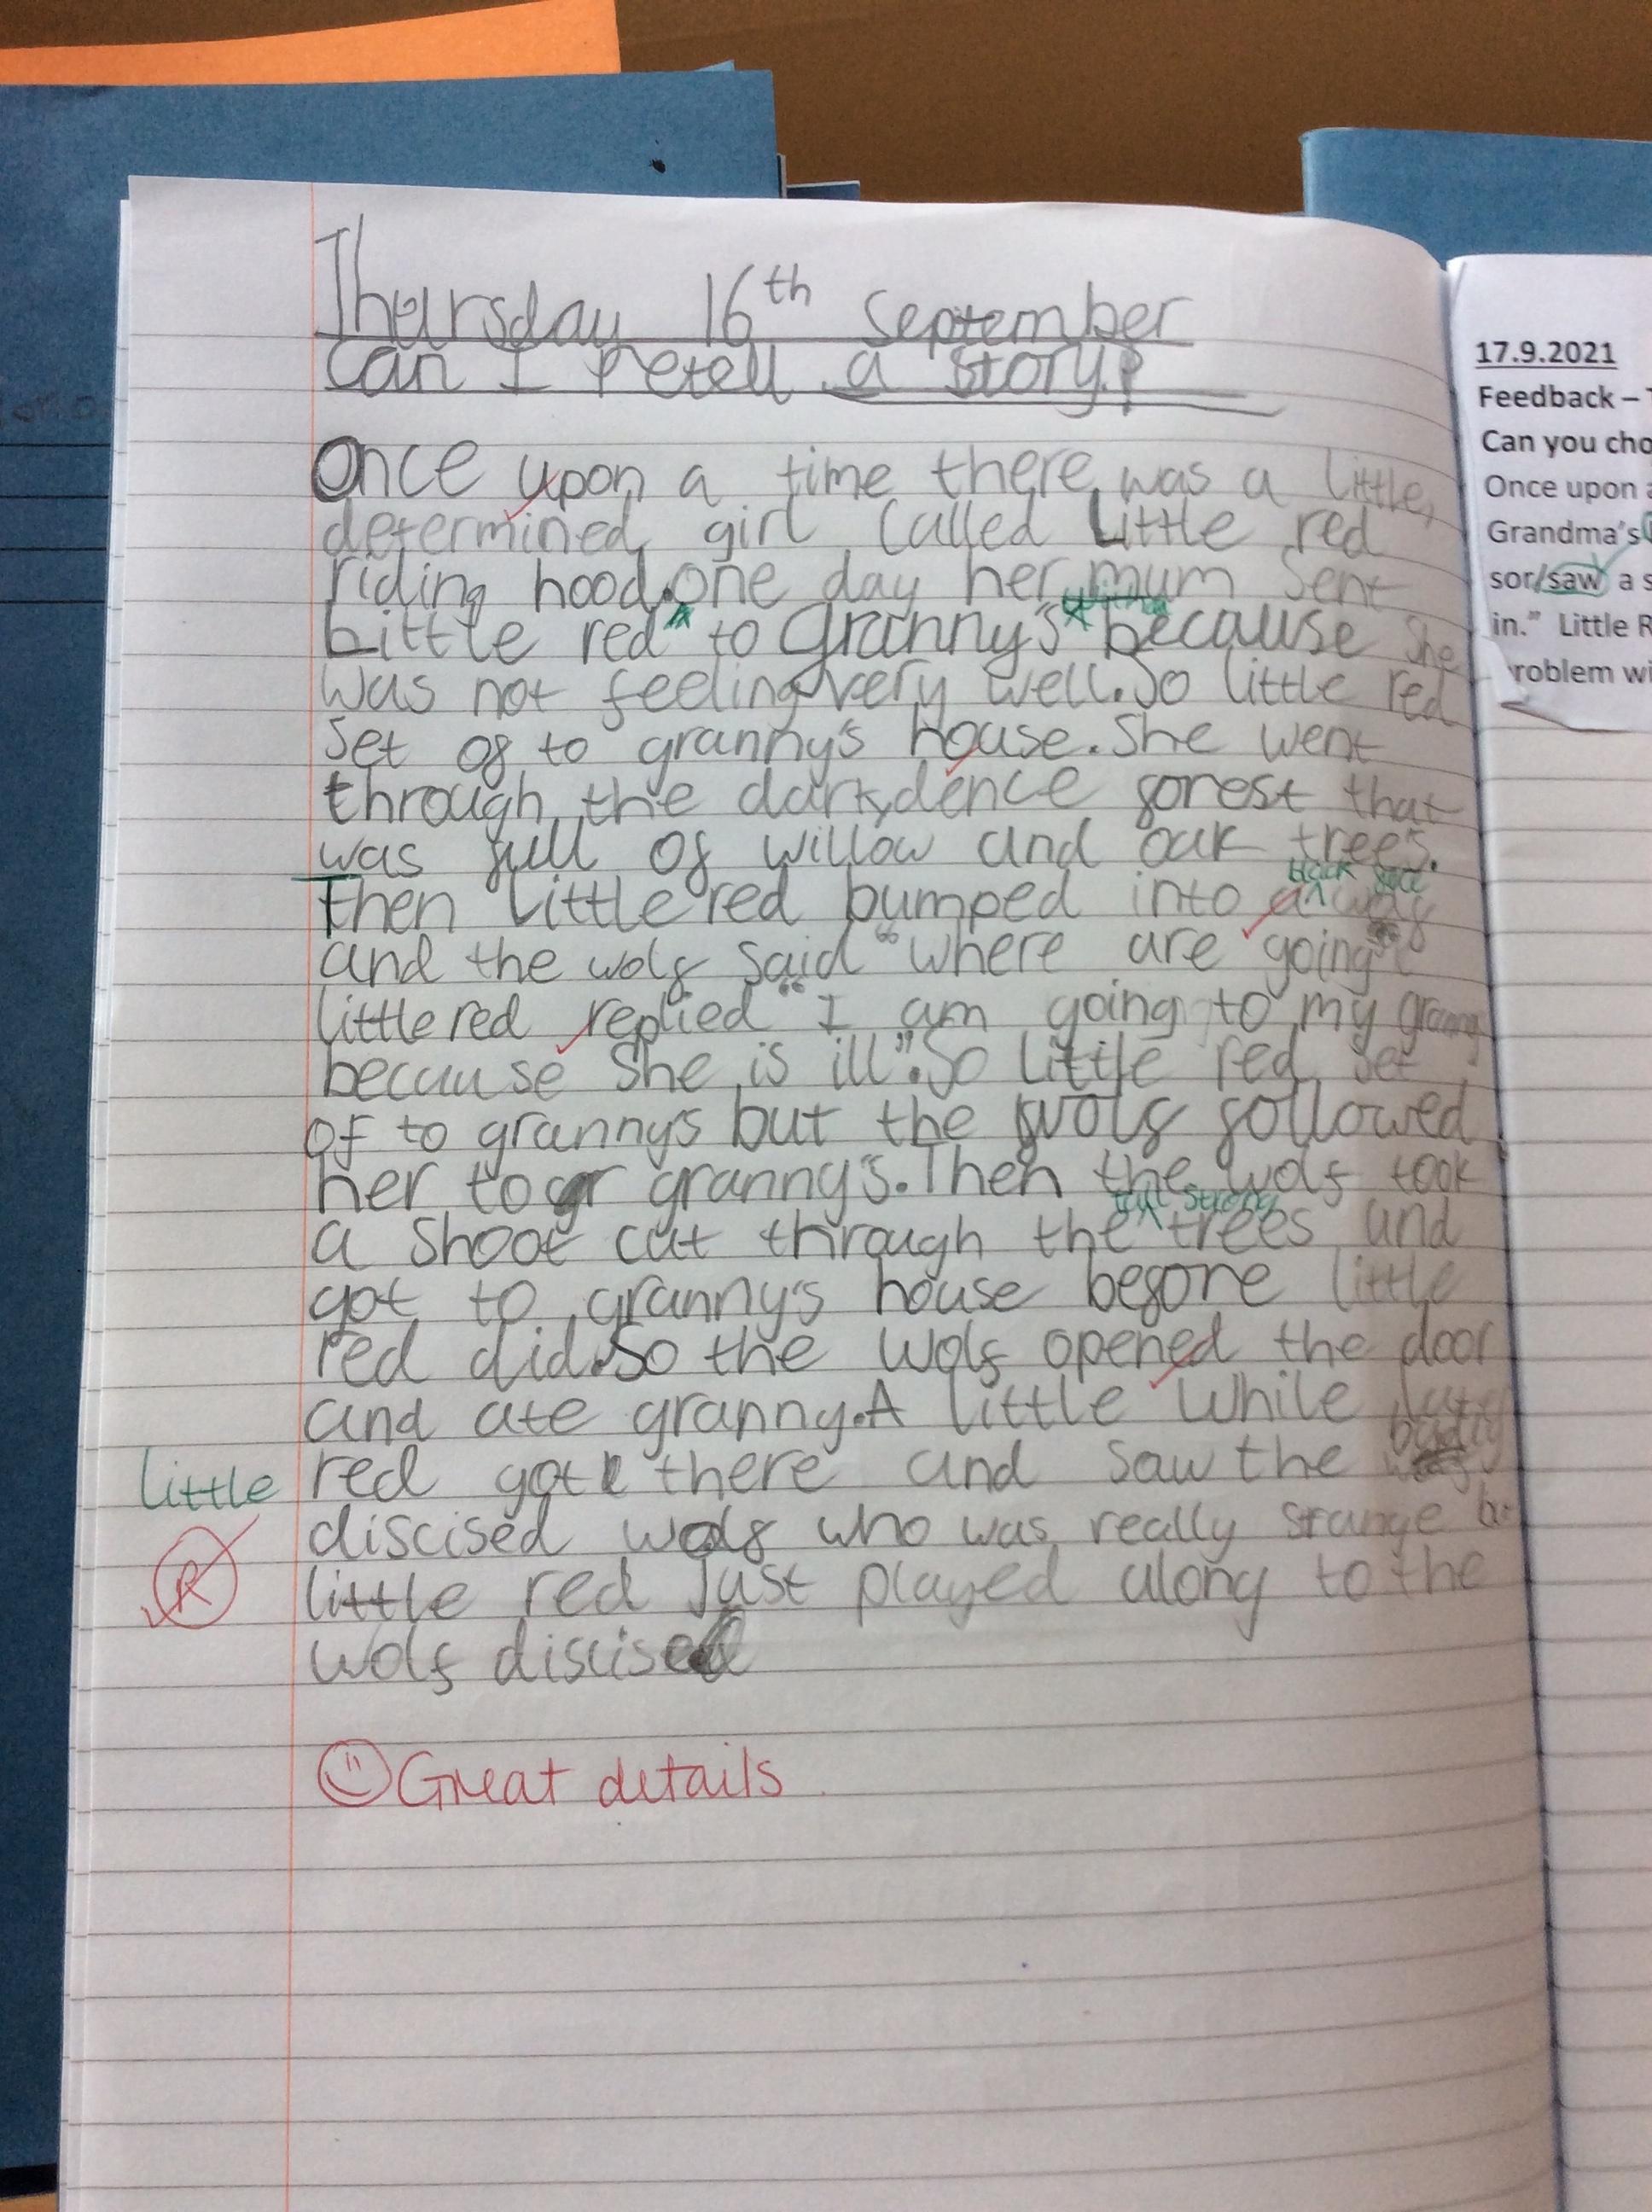 Thursday 16th September
Can I retell a story?
Once upon a time there was a little,
determined girl called Little red
riding hood. one day her mum sent
Little red to Granny's because she
was not feeling very well. So little red
set of to granny's house. She went
through the dark, dence forest that
was full of willow and oak trees.
black
Then little red bumped into a wolf
and the wolf said "where are going"
little red replied "I am going to my granny
because she is ill". So little red set
of to granny's but the wolf followed
her to gr granny's. Then the wolf took
tall strong
a shoot cut through the trees and
got to granny's house before little
red did. So the wolf opened the door
and ate granny. A little while later
badly
little red got there and saw the
discised wolf who was really strange but
little red just played along to the
wolf discised
R
Great details
17.9.2021
Feedback –
Can you cho
Once upon a
Grandma's
sor/saw a s
in." Little R
roblem wi